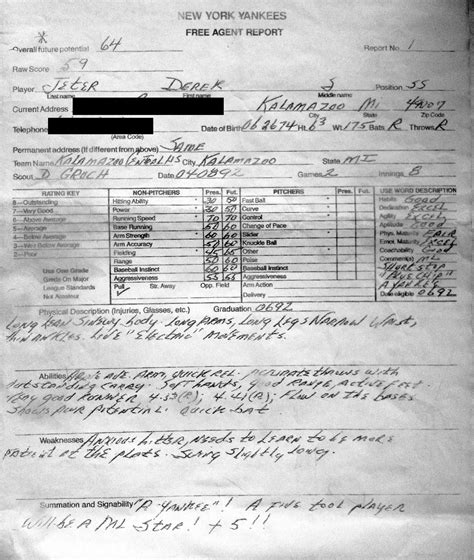 NEW YORK YANKEES
FREE AGENT REPORT
Overall future potential 64 Report No. 1
Raw Score 59
Player JETER DEREK S Position SS
Last name First name
Current Address KALAMAZOO MI 49007
Telephone Date of Birth 062674 Ht. 63 Wt. 175 Bats R Throws R
(Area Code)
Permanent address (if different from above) SAME
Team Name KALAMAZOO CENTRAL HS City KALAMAZOO State MI
Scout D GROCH Date 040892 Games 2 Innings
RATING KEY NON-PITCHERS Pres. Fut. PITCHERS Pres. Fut. USE WORD DESCRIPTION
8—Outstanding Hitting Ability 30 50 Fast Ball Habits Good
7—Very Good Power 30 50 Curve Dedication Excel
6—Above Average Running Speed 70 70 Control Agility Excel
5—Average Base Running Change of Pace Aptitude Good
4—Below Average Arm Strength 60 60 Slider Phys. Maturity FAIR
3—Well Below Average Arm Accuracy Knuckle Ball Emot. Maturity Excel
2—Poor Fielding Other
Range 50 Poise Comments ML
Use One Grade Baseball Instinct 60 60 Baseball Instinct
Grade On Major Aggressiveness Aggressiveness "BLUE CHIP"
League Standards Pull Str. Away Opp. Field Arm Action A YANKEE
Not Amateur Delivery Date eligible 0692
Physical Description (Injuries, Glasses, etc.) Graduation 0692
LONG LEAN SINEWY Body. LONG ARMS, LONG LEGS NARROW WAIST,
thin ANKLES. LIVE "ELECTRIC" MOVEMENTS.
Abilities ARM, QUICK REL. ACCURATE throws with
outstanding CARRY. SOFT HANDS, good RANGE, ACTIVE feet.
Very good RUNNER FLOW ON the bases
Shows PWR POTENTIAL. QUICK bat
Weaknesses Anxious hitter, needs to LEARN to be more
patient at the plate. Swing slightly long.
Summation and Signability "A YANKEE"! A FIVE TOOL player
Will be A ML STAR! + 5!!